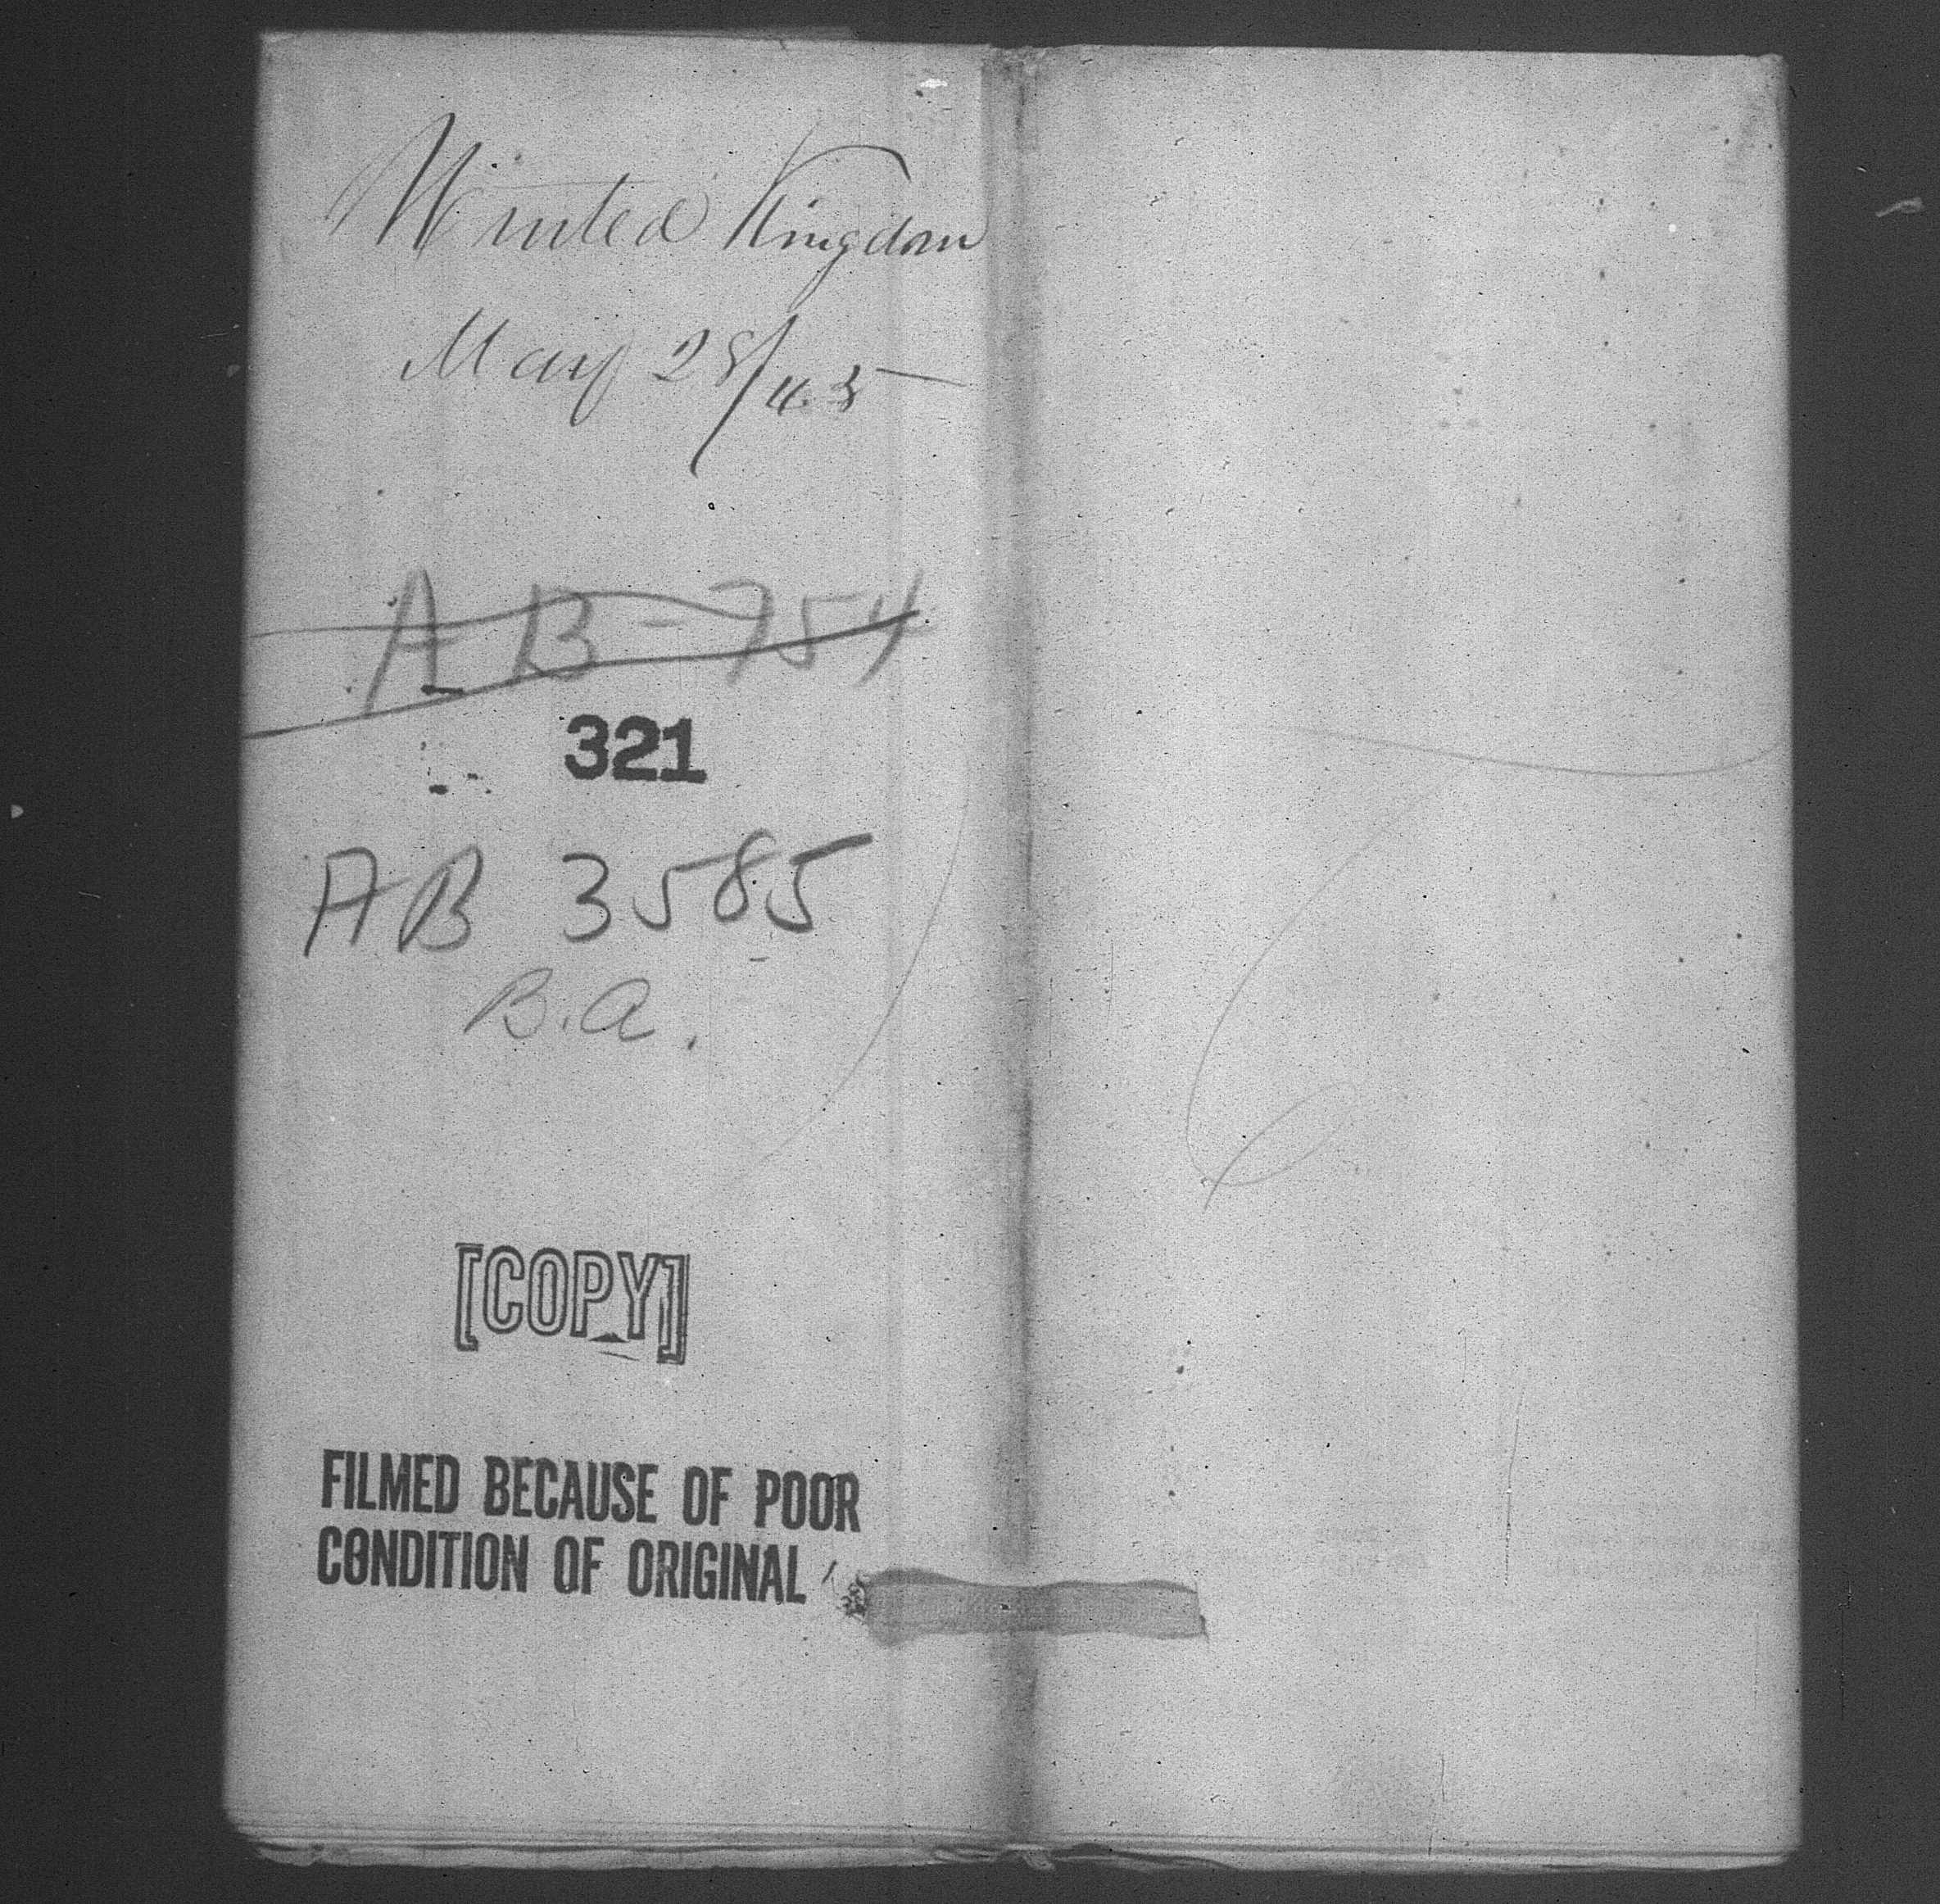 United Kingdom
May 28/43
AB-754
321
AB 3585
B.A.
[COPY]
FILMED BECAUSE OF POOR
CONDITION OF ORIGINAL